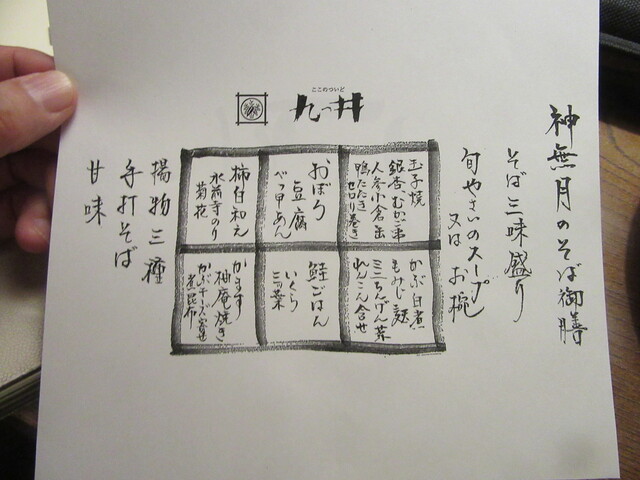 ここのついど
九つ井
神無月のそば御膳
そば三味盛り
旬やさいのスープ
又は お椀
玉子焼
銀杏、むかご串
人参小倉缶
鴨たたき
セロリ巻き
おぼろ
豆腐
べっ甲あん
柿白和え
水前寺のり
菊花
かぶ白煮
もみじ麩
ミニちんげん菜
れんこん合せ
鮭ごはん
いくら
三つ葉
かます
柚庵焼き
かぶチーズ寄せ
煮昆布
揚物三種
手打そば
甘味